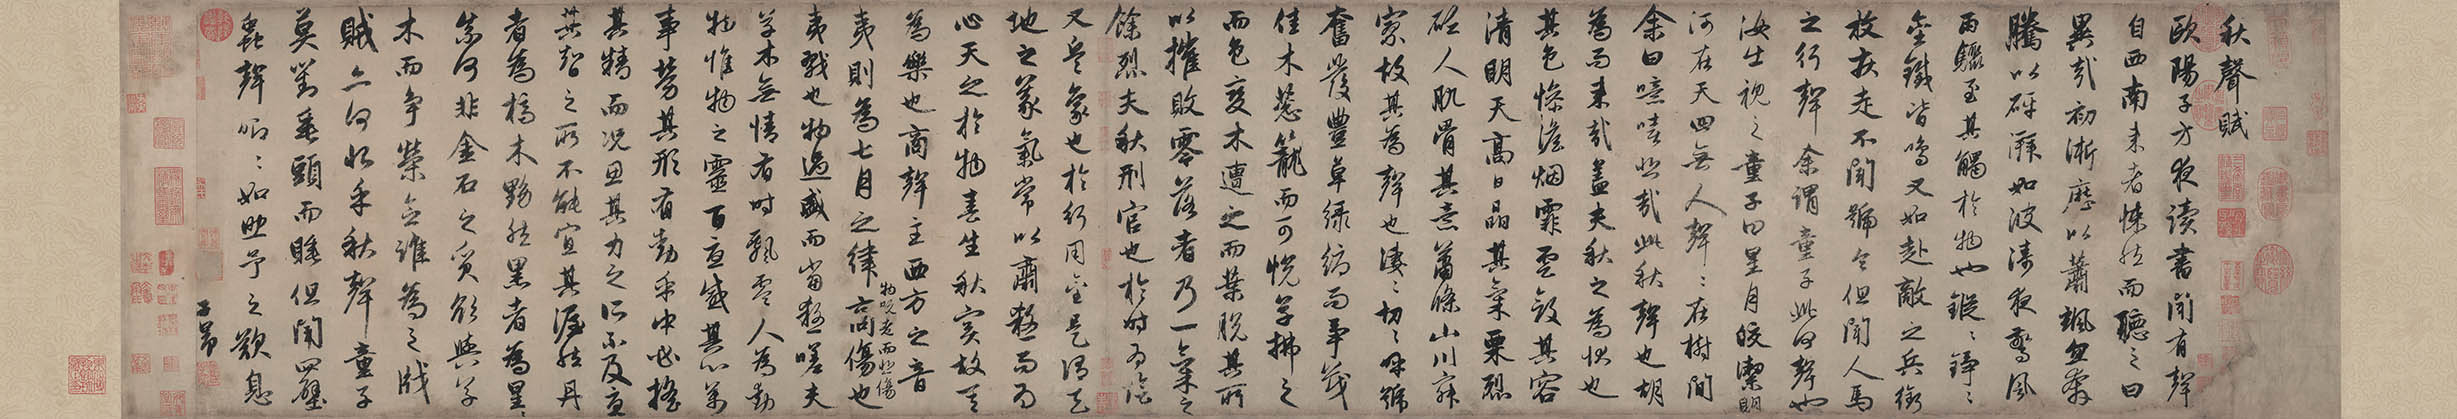 秋聲賦
歐陽子方夜讀書聞有聲
自西南来者悚然而聽之曰
異哉初淅瀝以蕭颯忽奔
騰以砰湃如波濤夜驚風
雨驟至其觸於物也鏦〻錚〻
金鐵皆鳴又如赴敵之兵銜
枚疾走不聞號令但聞人馬
之行聲余謂童子此何聲也
汝出視之童子曰星月皎潔明
河在天四無人聲〻在樹間
余曰噫嘻悲哉此秋聲也胡
為而来哉盖夫秋之為狀也
其色慘澹烟霏雲斂其容
清明天高日晶其氣栗烈
砭人肌骨其意蕭條山川寂
寥故其為聲也凄〻切〻呼號
奮發豐草緑縟而争茂
佳木葱籠而可悦草拂之
而色變木遭之而葉脱其所
以摧敗零落者乃一氣之
餘烈夫秋刑官也於時為陰
又兵象也於行用金是謂天
地之義氣常以肅殺而為
心天之於物春生秋實故其
為樂也商聲主西方之音
夷則為七月之律商傷也
物既老而悲傷
夷戮也物過盛而當殺嗟夫
草木無情有時飄零人為動
物惟物之靈百憂感其心萬
事勞其形有動乎中必搖
其精而况思其力之所不及憂
其智之所不能宜其渥然丹
者為槁木黟然黑者為星〻
奈何非金石之質欲與草
木而争榮念誰為之戕
賊亦何恨乎秋聲童子
莫對垂頭而睡但聞四壁
蟲聲唧〻如助予之歎息
子昂